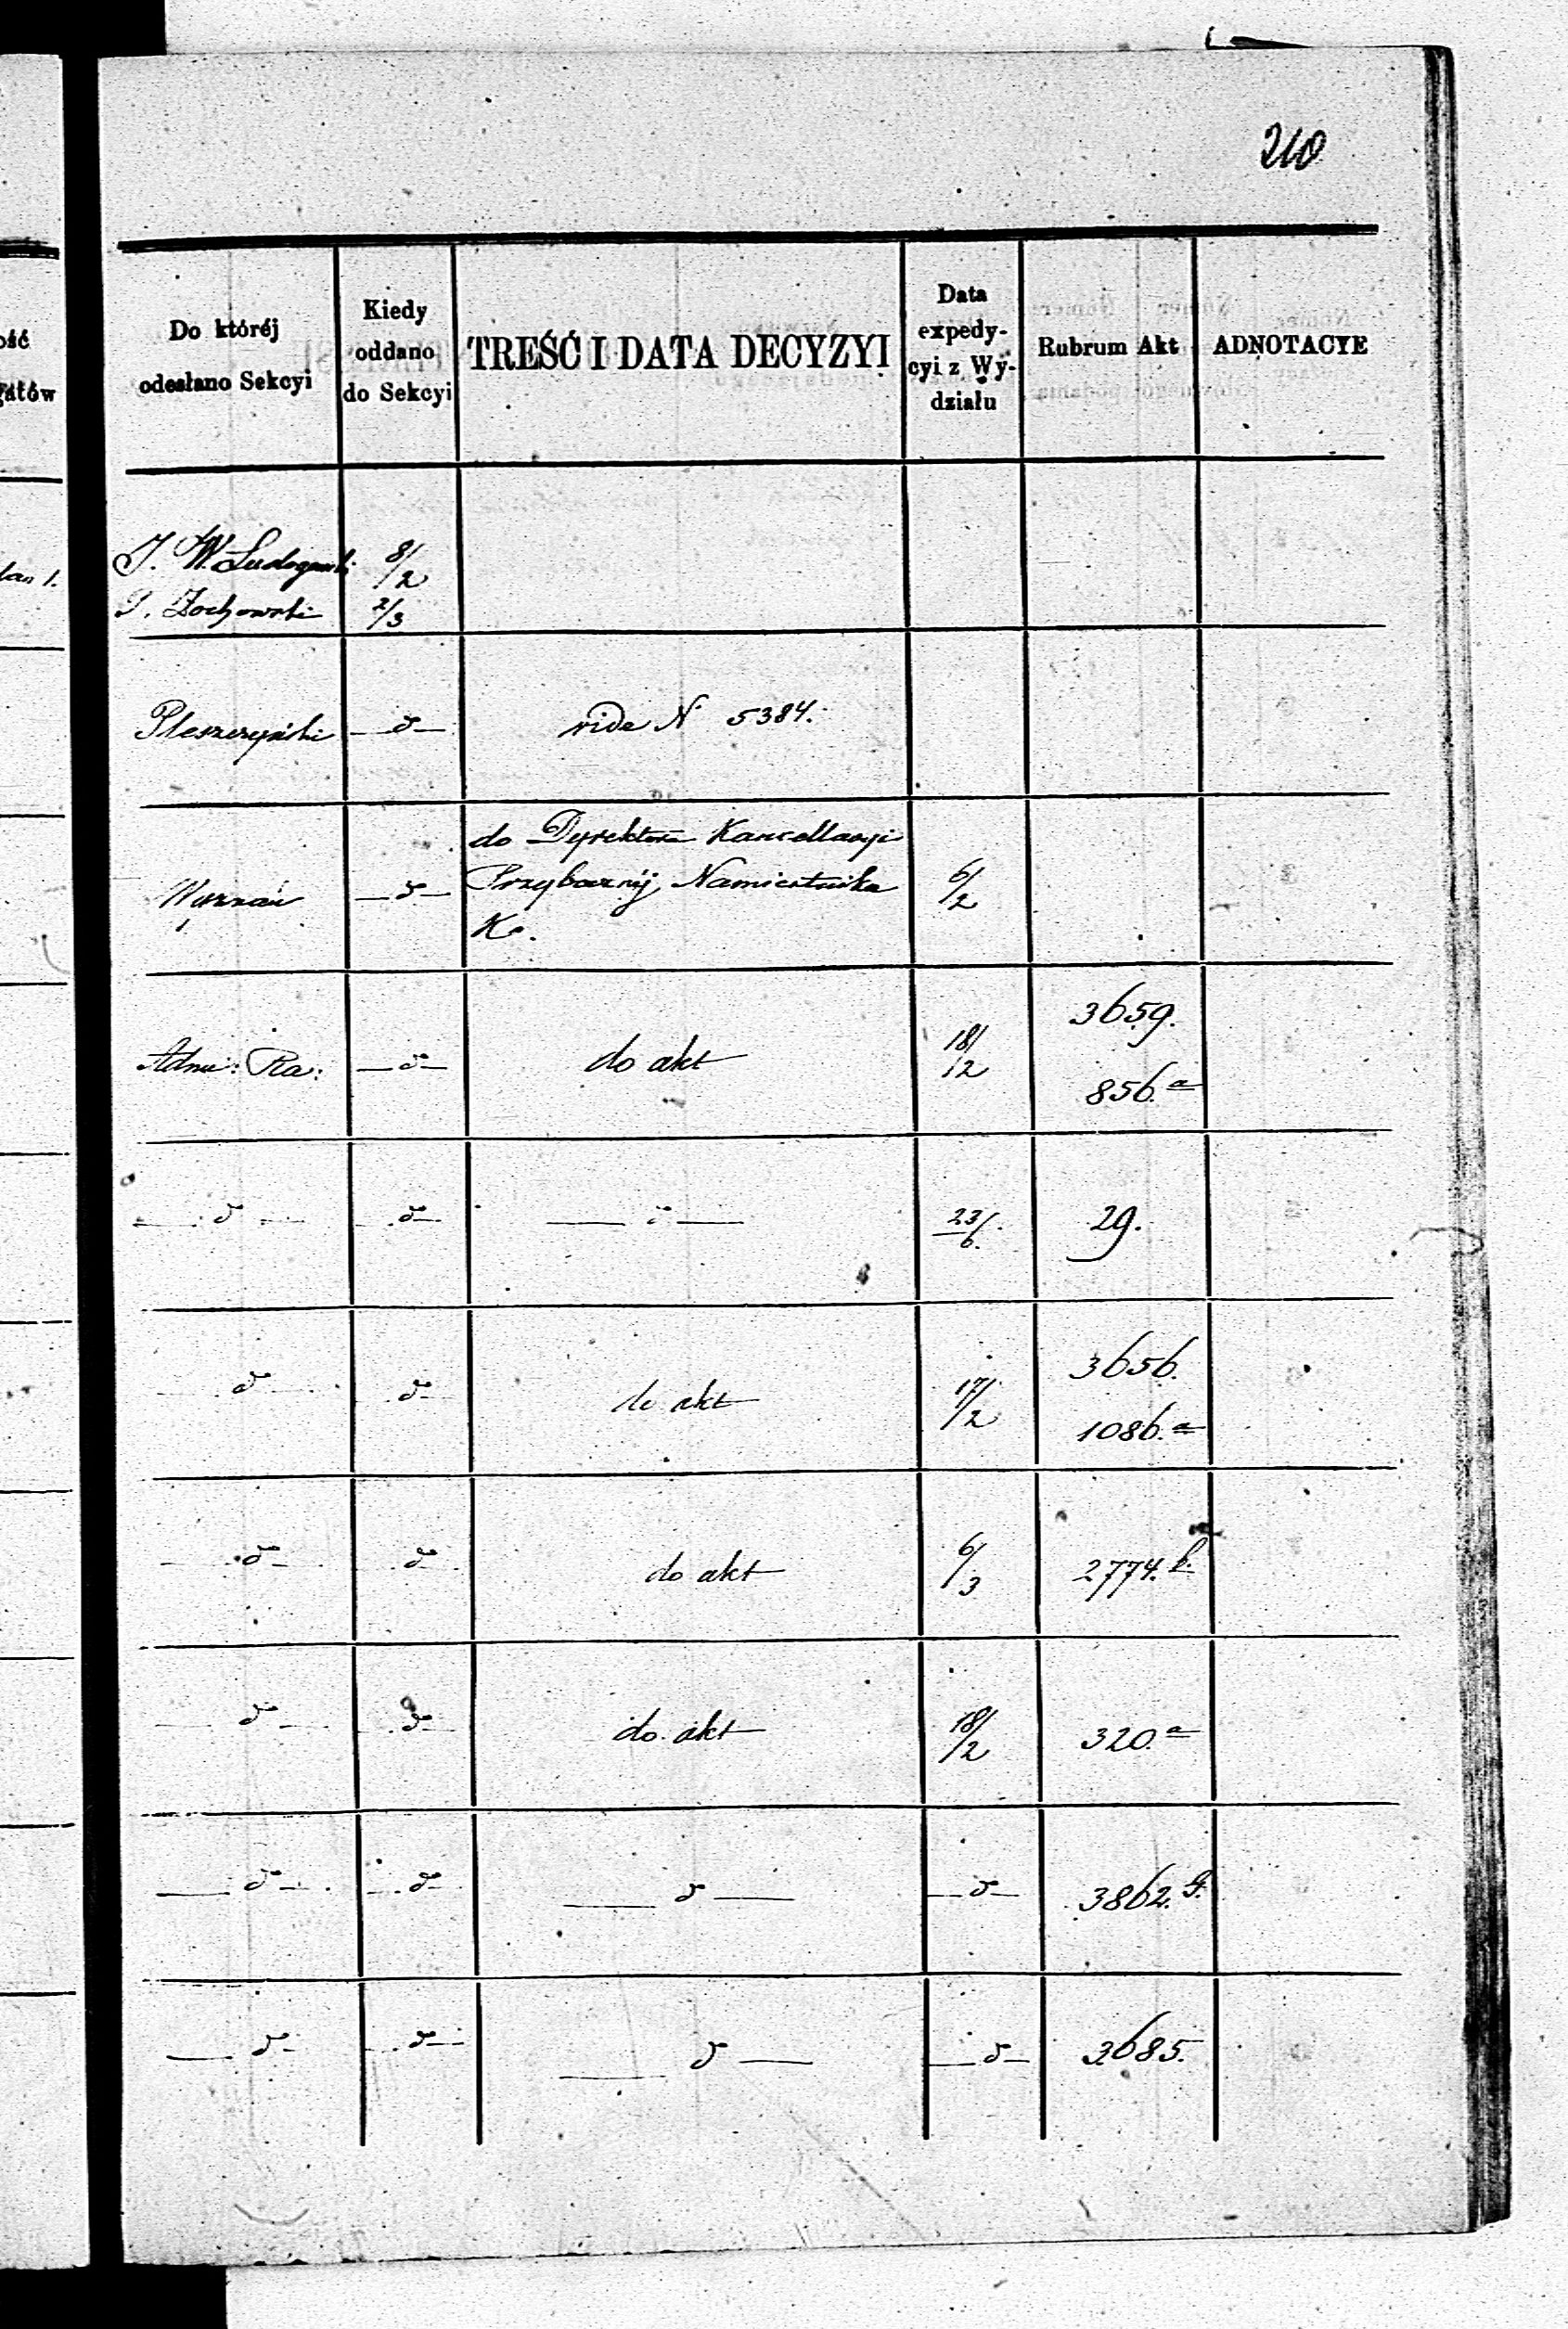 210
ość
gatów
Do któréj
odesłano Sekcyi
Kiedy
oddano
do Sekcyi
TREŚĆ I DATA DECYZYI
Data
expedy-
cyi z Wy-
działu
Rubrum Akt
ADNOTACYE
J. W. 8/2
P. Żochowski 2/3
Pleszczyński — d° — vide N 5384.
do Dyrektora Kancellaryi
Wyznań — d° — Przybocznéj Namiestnika 6/2
Ko.
3659.
Adm: Ra: — d° — do akt 18/2
856.a
— d° — d° — — d° — 23/6. 29.
3656.
— d° — d° — do akt 17/2
1086.a
— d° — d° do akt 6/3 2774.b.
— d° — d° — do akt 18/2 320.a
— d° — d° — — d° — — d° — 3862.
— d° — d° — — d° — — d° — 3685.